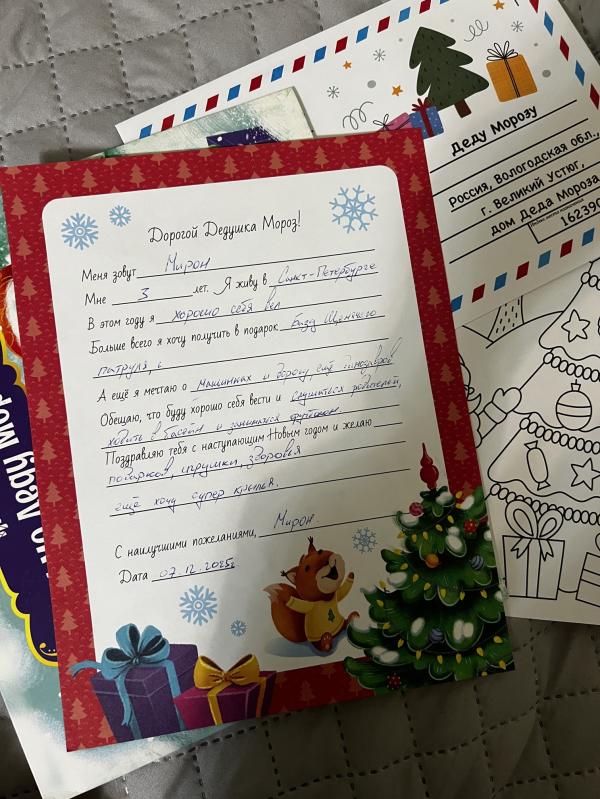 Деду Морозу
Россия, Вологодская обл.,
г. Великий Устюг,
дом Деда Мороза
162390
Дорогой Дедушка Мороз!
Меня зовут Мирон
Мне 3 лет. Я живу в Санкт-Петербурге
В этом году я хорошо себя вел
Больше всего я хочу получить в подарок базу Щенячего
патруля,
А ещё я мечтаю о машинках и дорогу, ещё динозавров
Обещаю, что буду хорошо себя вести и слушаться родителей,
ходить в басейн и заниматься футболом.
Поздравляю тебя с наступающим Новым годом и желаю
подарков, игрушки, здоровья
ещё хочу супер крылья.
С наилучшими пожеланиями, Мирон.
Дата 07.12.2025г
Деду Мор